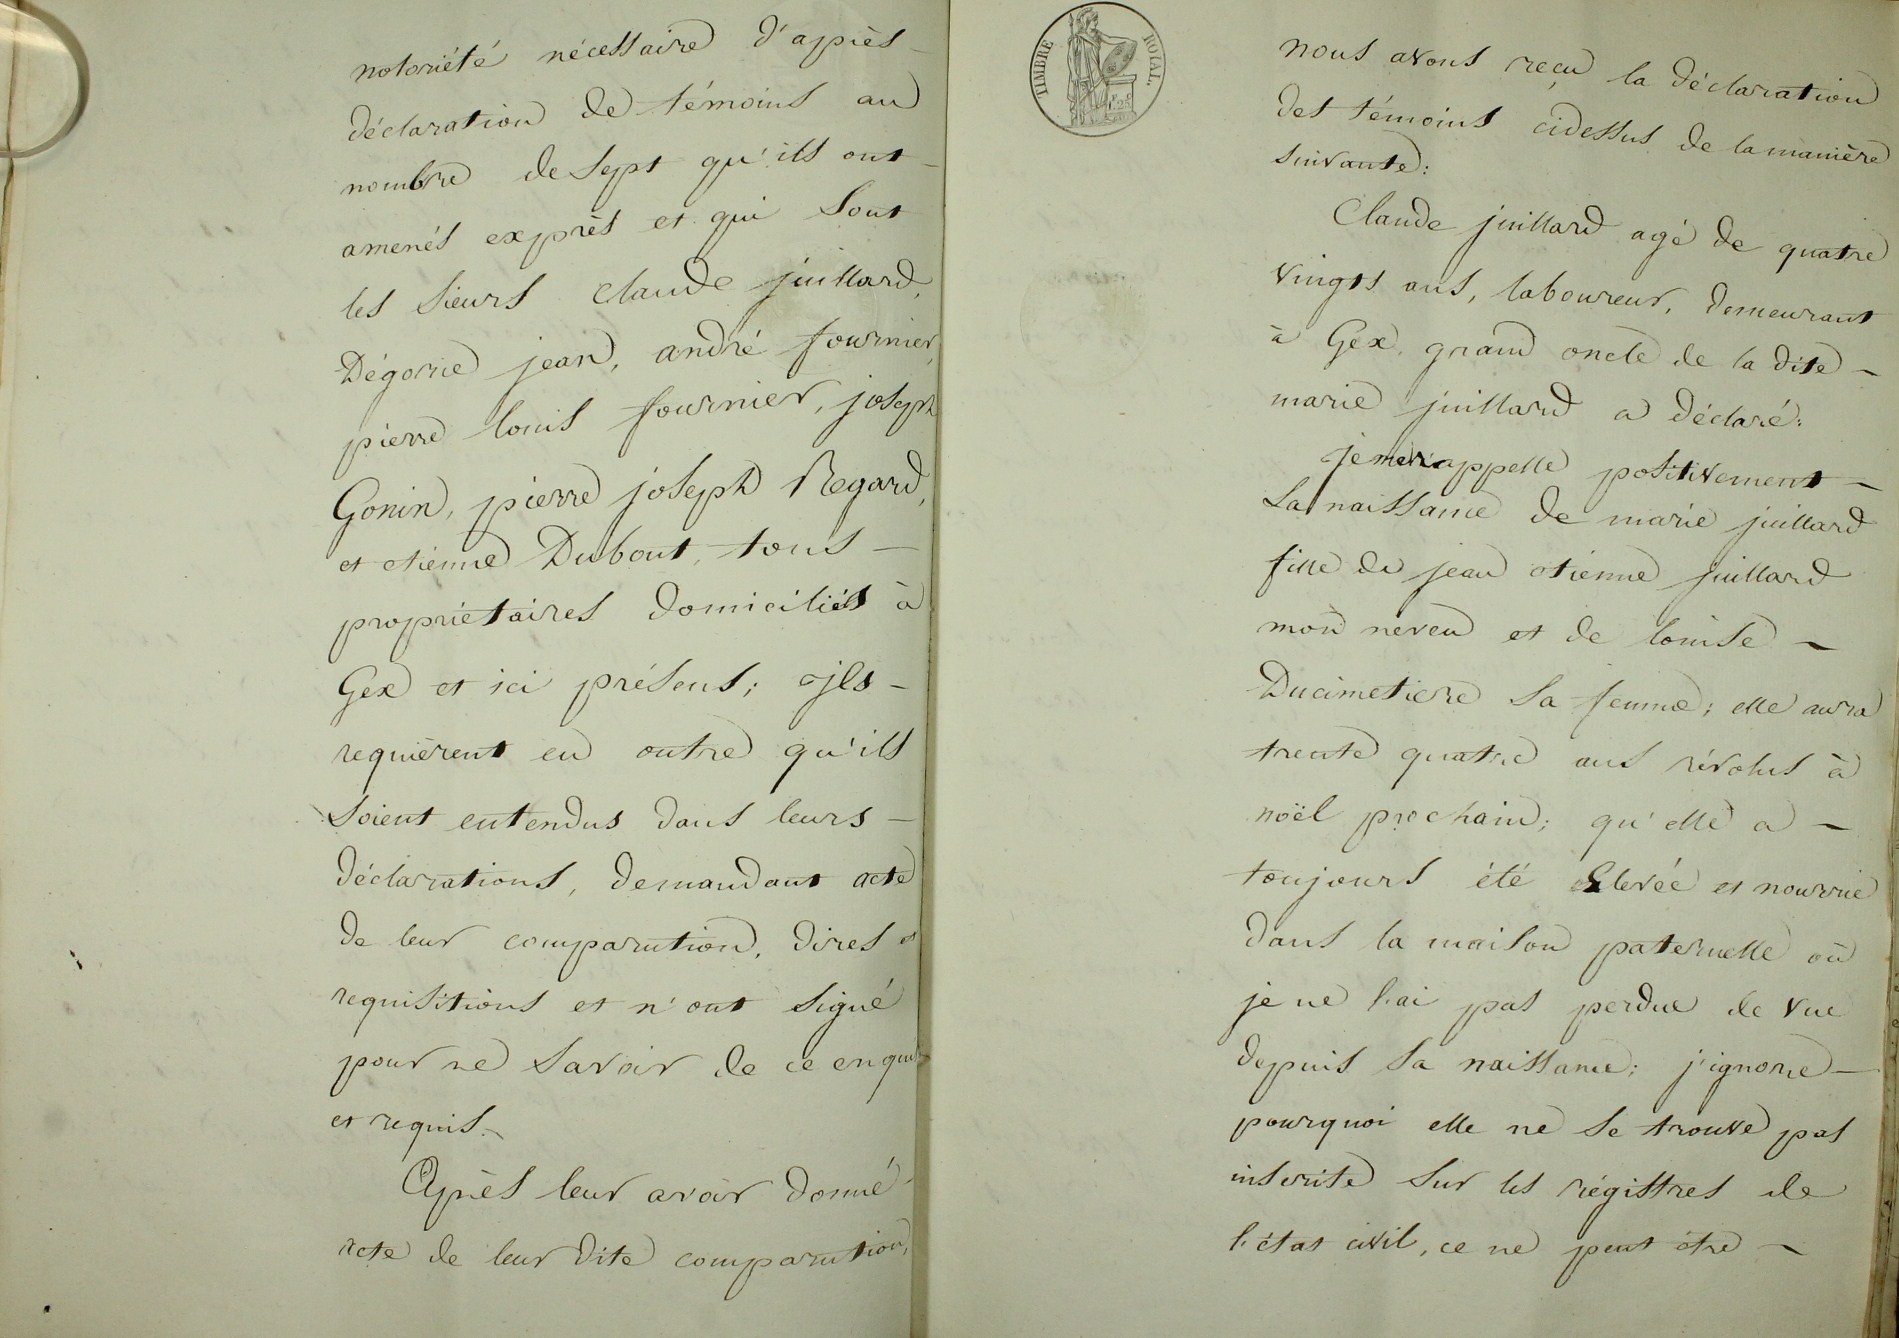 notoriété nécessaire d'après -
déclaration de témoins au
nombre de sept qu'ils ont -
amenés exprès et qui sont
les sieurs Claude juillard,
Dégorne jean, andré fournier,
pierre louis fournier, joseph
Gonin, pierre joseph Regard,
et etienne Dubout, tous -
propriétaires domiciliés à
Gex et ici présens; ils -
requièrent en outre qu'ils
soient entendus dans leurs -
déclarations, demandant acte
de leur comparution, dires et
requisitions et n'ont signé
pour ne savoir de ce enquis
et requis. -
Après leur avoir donné
acte de leur dite comparution,
TIMBRE ROYAL.
nous avons reçu la déclaration
des témoins cidessus de la manière
suivante:
Claude juillard agé de quatre
vingts ans, laboureur, demeurant
à Gex, grand oncle de la dite -
marie juillard a déclaré:
je me rappelle positivement -
la naissance de marie juillard
fille de jean etienne juillard
mon neveu et de louise -
Ducimetiere sa femme; elle aura
trente quatre ans révolus à
noël prochain; qu'elle a -
toujours été élevée et nourrie
dans la maison paternelle où
je ne l'ai pas perdue de vue
depuis sa naissance; j'ignore -
pourquoi elle ne se trouve pas
inscrite sur les régistres de
l'état civil, ce ne peut être -